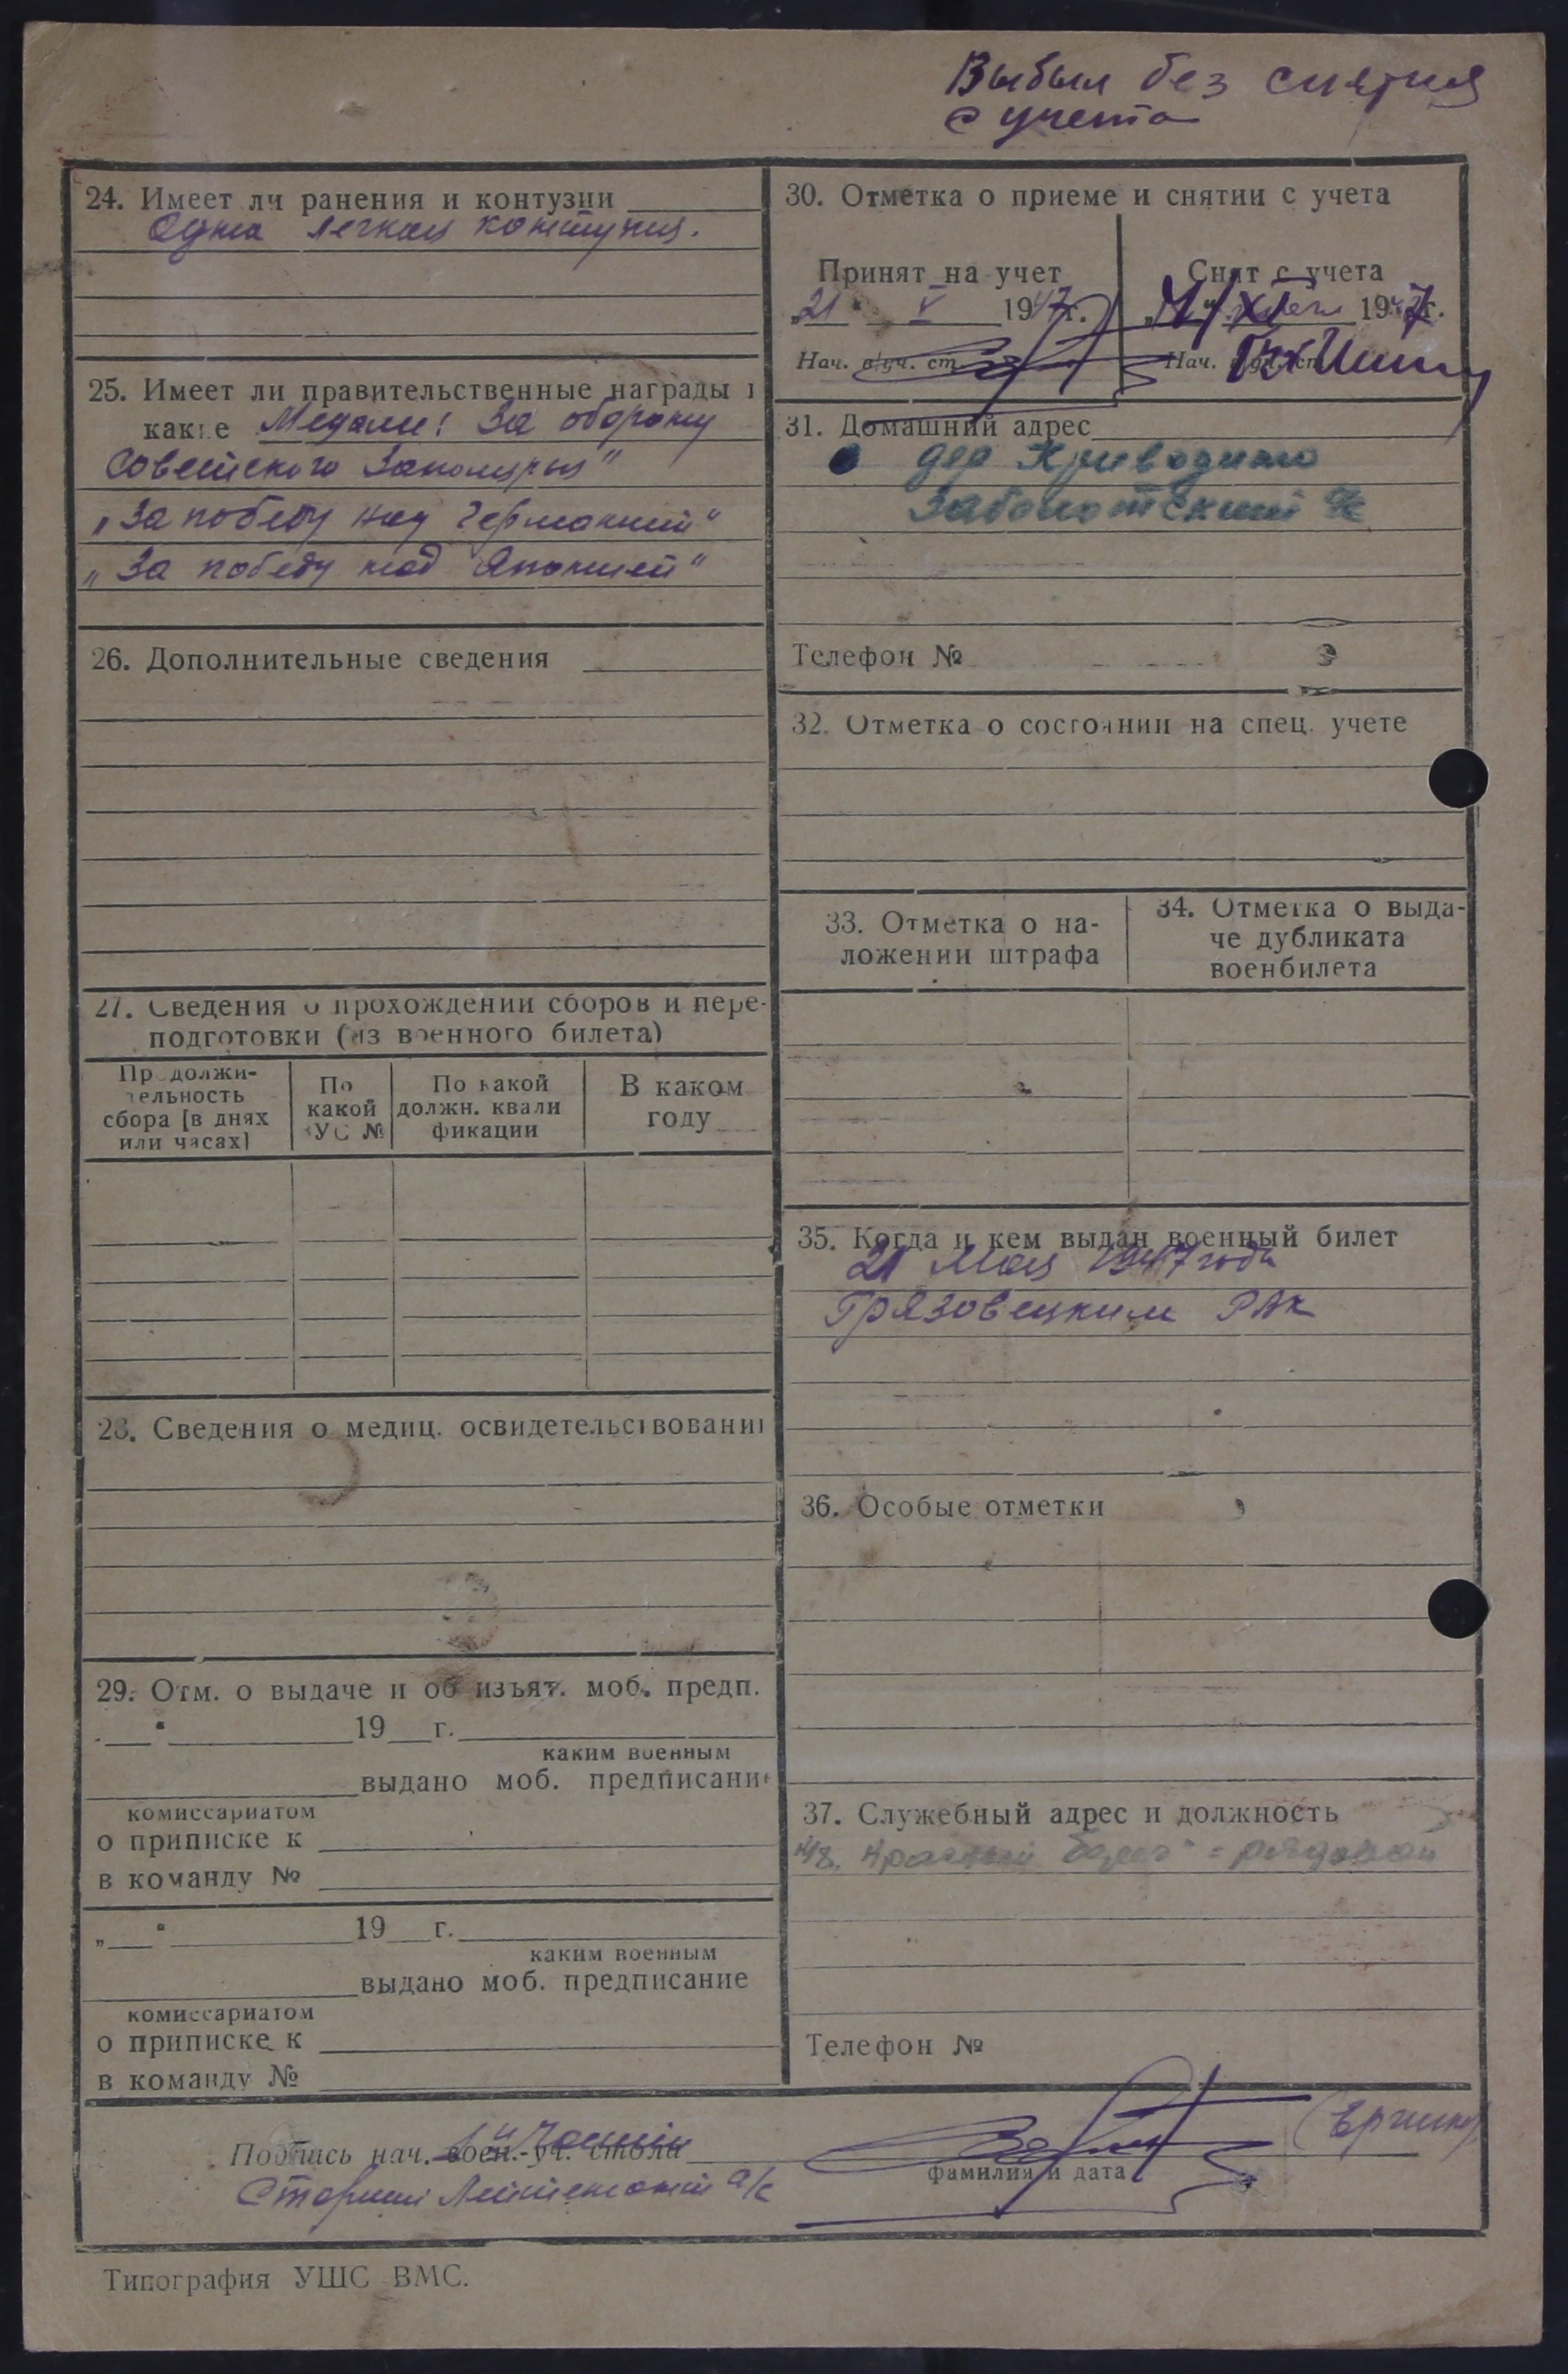 Выбыл без снятия
с учета
24. Имеет ли ранения и контузии
Одна легкая контузия.
25. Имеет ли правительственные награды и
какие Медали: За оборону
Советского Заполярья"
"За победу над Германией"
"За победу над Японией"
26. Дополнительные сведения
27. Сведения о прохождении сборов и пере-
подготовки (из военного билета)
Продолжи-
тельность
сбора [в днях
или часах]
По
какой
ВУС №
По какой
должн. квали
фикации
В каком
году
28. Сведения о медиц. освидетельствовании
29. Отм. о выдаче и об изъят. моб. предп.
" 19 г.
каким военным
выдано моб. предписание
комиссариатом
о приписке к
в команду №
„ " 19 г.
каким военным
выдано моб. предписание
комиссариатом
о приписке к
в команду №
30. Отметка о приеме и снятии с учета
Принят на учет
„21" V 1947г.
Нач. в/уч. ст.
Снят с учета
XI 1947г.
Нач. в/уч. ст.
31. Домашний адрес
дер Криводино
Заболотский с/с
Телефон №
32. Отметка о состоянии на спец. учете
33. Отметка о на-
ложении штрафа
34. Отметка о выда-
че дубликата
военбилета
35. Когда и кем выдан военный билет
21 Мая 1947 года
Грязовецким РВК
36. Особые отметки
37. Служебный адрес и должность
к/з. Красный берег - рядовой
Телефон №
Подпись нач. воен.-уч. стола
4 части
Старший Лейтенант а/с
фамилия и дата
Типография УШС ВМС.